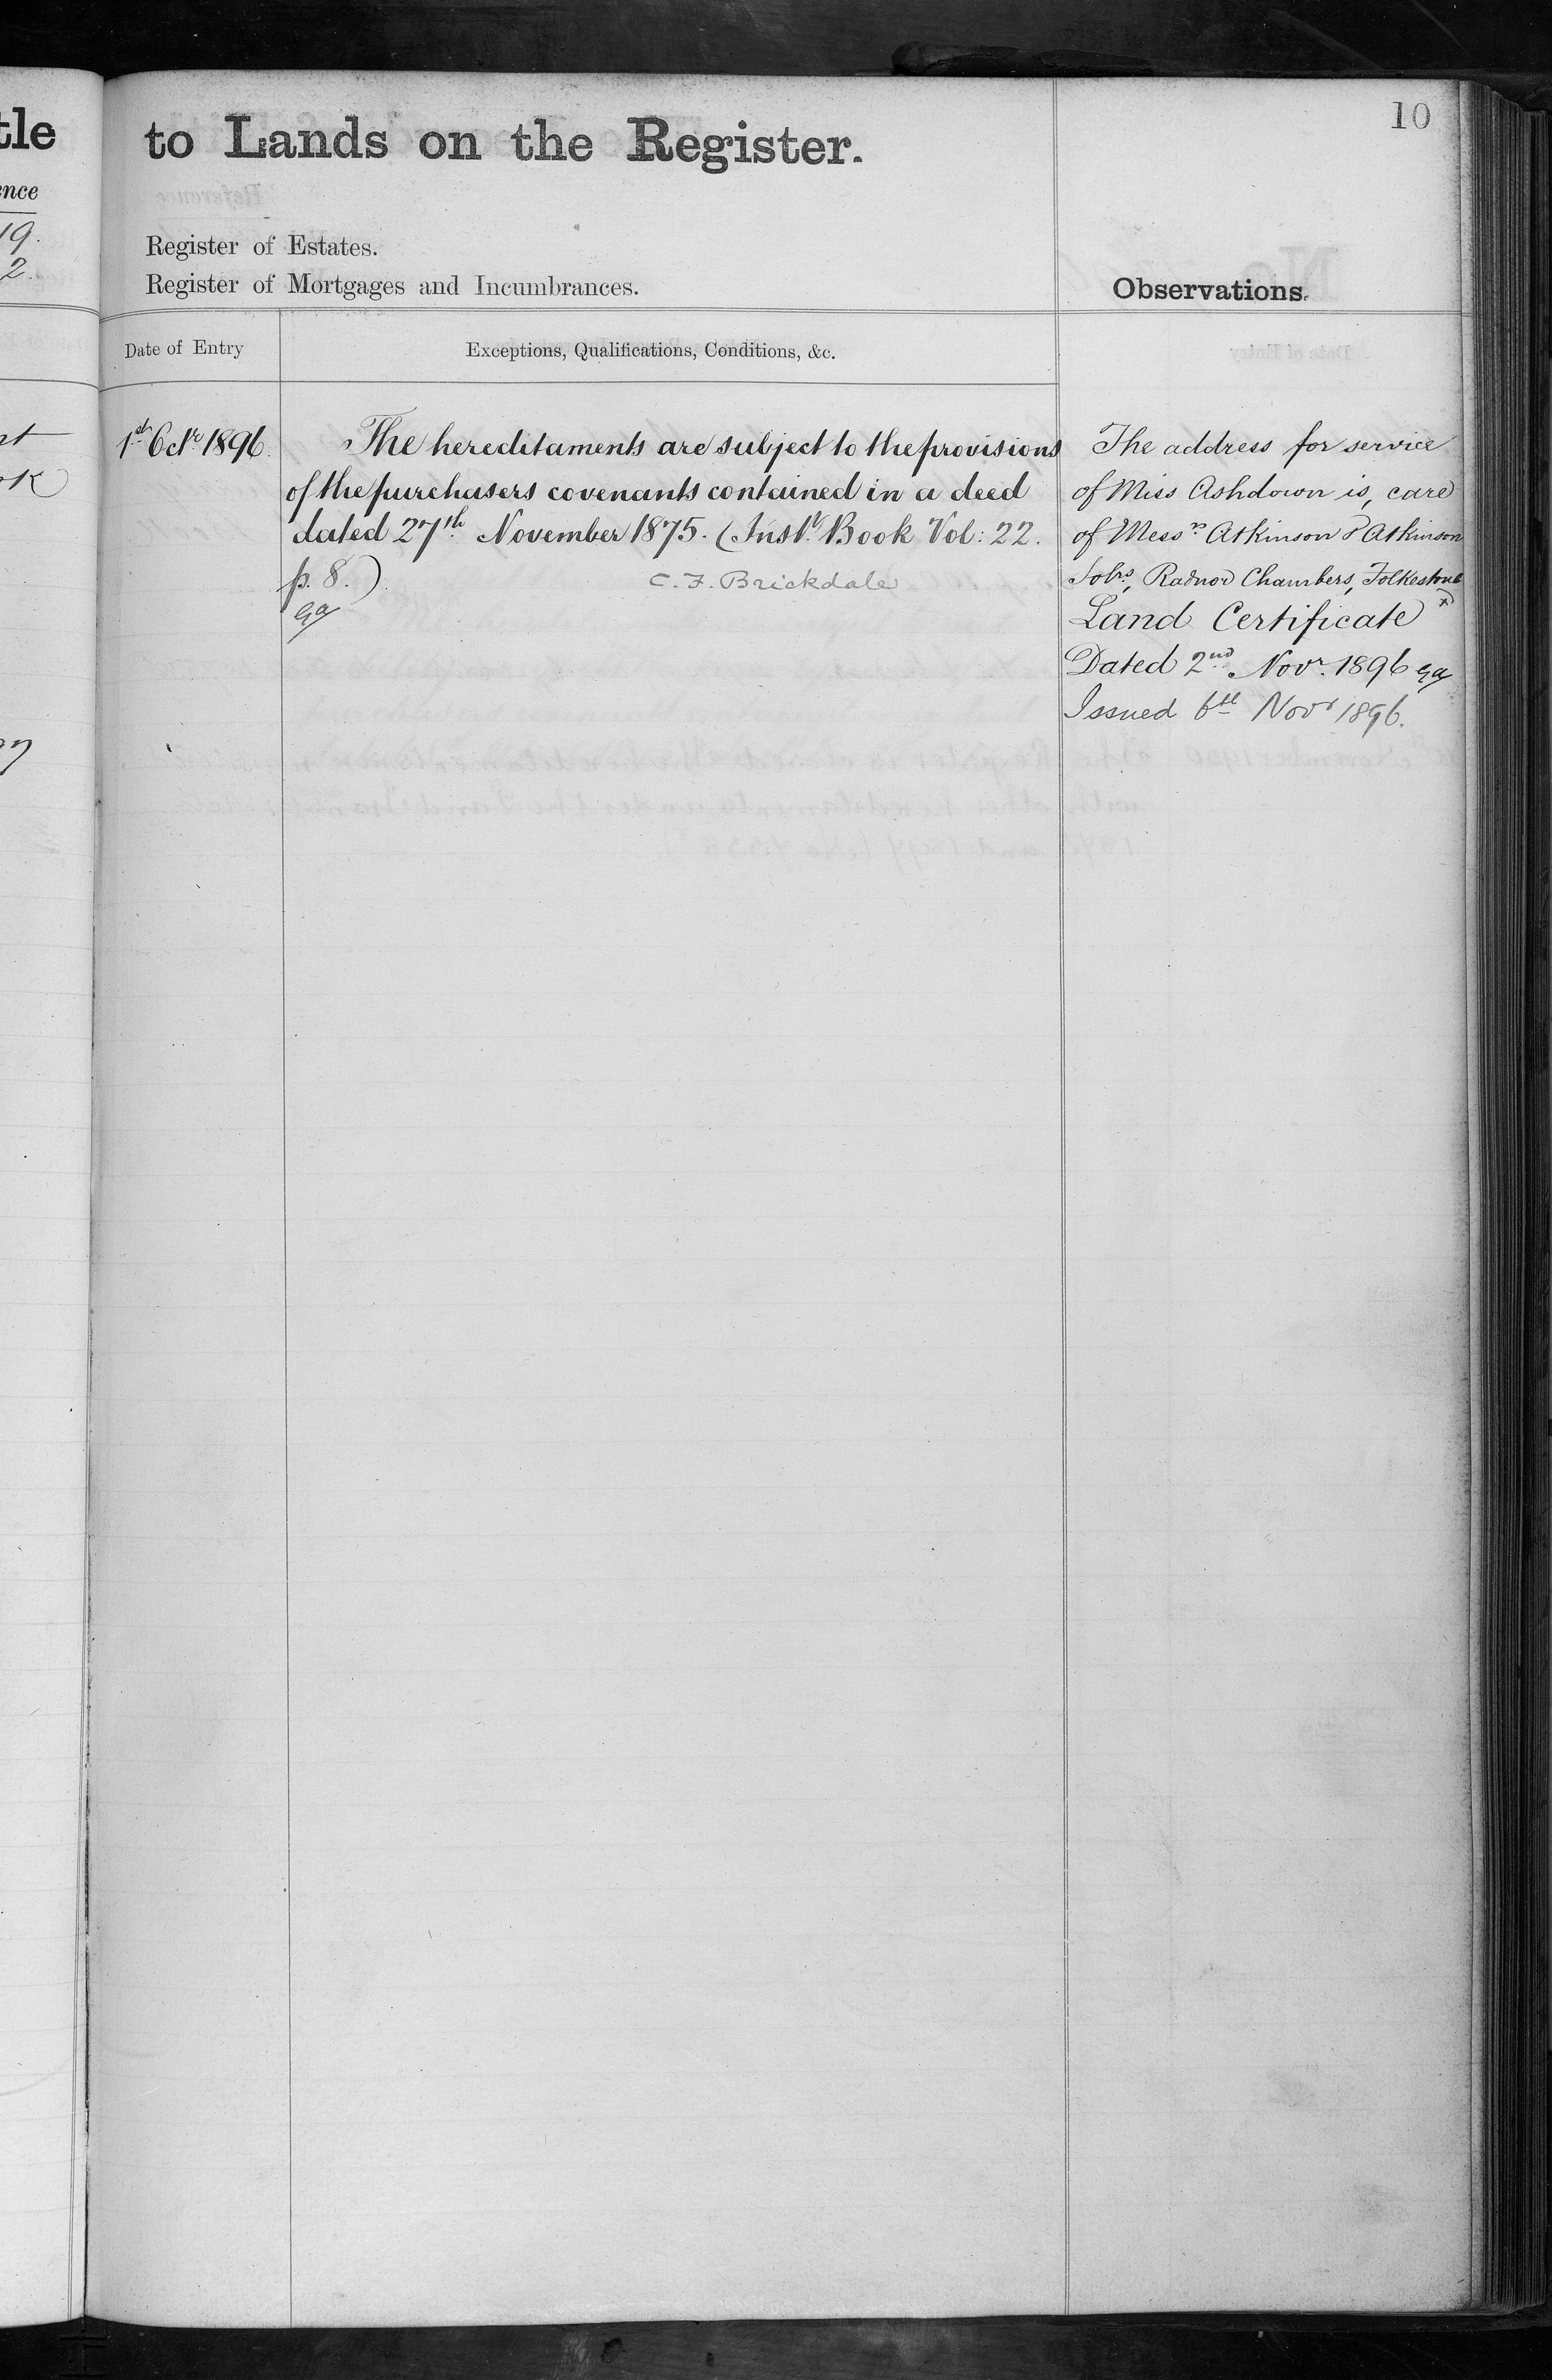 10
tle
to Lands on the Register.
ence
19.
2.
Register of Estates.
Register of Mortgages and Incumbrances.
Observations.
Date of Entry
Exceptions, Qualifications, Conditions, &c.
1st Octr 1896.
The hereditaments are subject to the provisions
of the purchasers covenants contained in a deed
dated 27th November 1875. (Inst. Book Vol: 22.
p. 8.)
C. F. Brickdale
The address for service
of Miss Ashdown is, care
of Messrs Atkinson & Atkinson
Solrs, Radnor Chambers, Folkestone
Land Certificate
Dated 2nd Novr. 1896
Issued 6th Novr 1896.